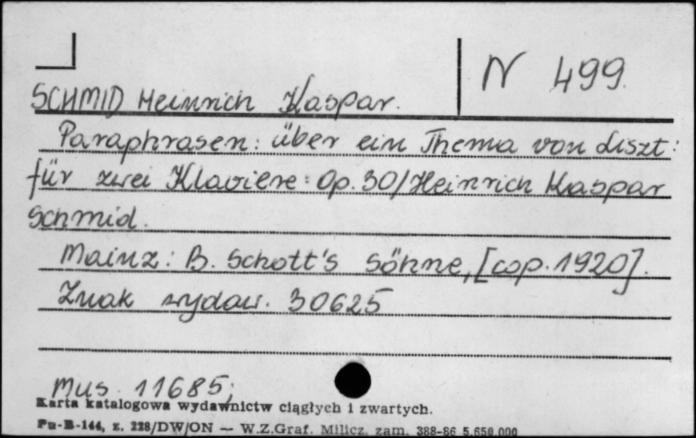 N 499.
SCHMID Heinrich Kaspar.
Paraphrasen: über ein Thema von Liszt:
für zwei Klaviere: Op. 30/Heinrich Kaspar
Schmid.
Mainz: B. Schott's Söhne, [cop. 1920].
Znak wydaw. 30625
Mus. 11685;
Karta katalogowa wydawnictw ciągłych i zwartych.
Pu-B-144, z. 228/DW/ON — W.Z.Graf. Milicz, zam. 388-86 5.650.000